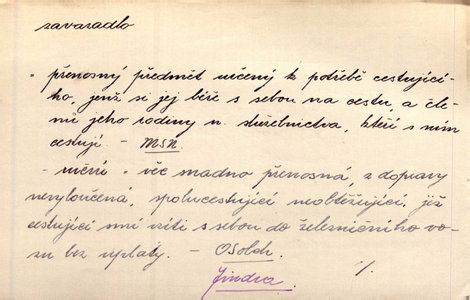 zavazadlo
- přenosný předmět určený k potřebě cestující-
ho, jenž si jej béře s sebou na cestu, a čle-
nů jeho rodiny n. služebnictva, kteří s ním
cestují - MSN.
- ruční - věc snadno přenosná, z dopravy
nevyloučená, spolucestující neobtěžující, již
cestující smí vzíti s sebou do železničního vo-
zu bez úplaty. - OSoldr.
Jindra. /.